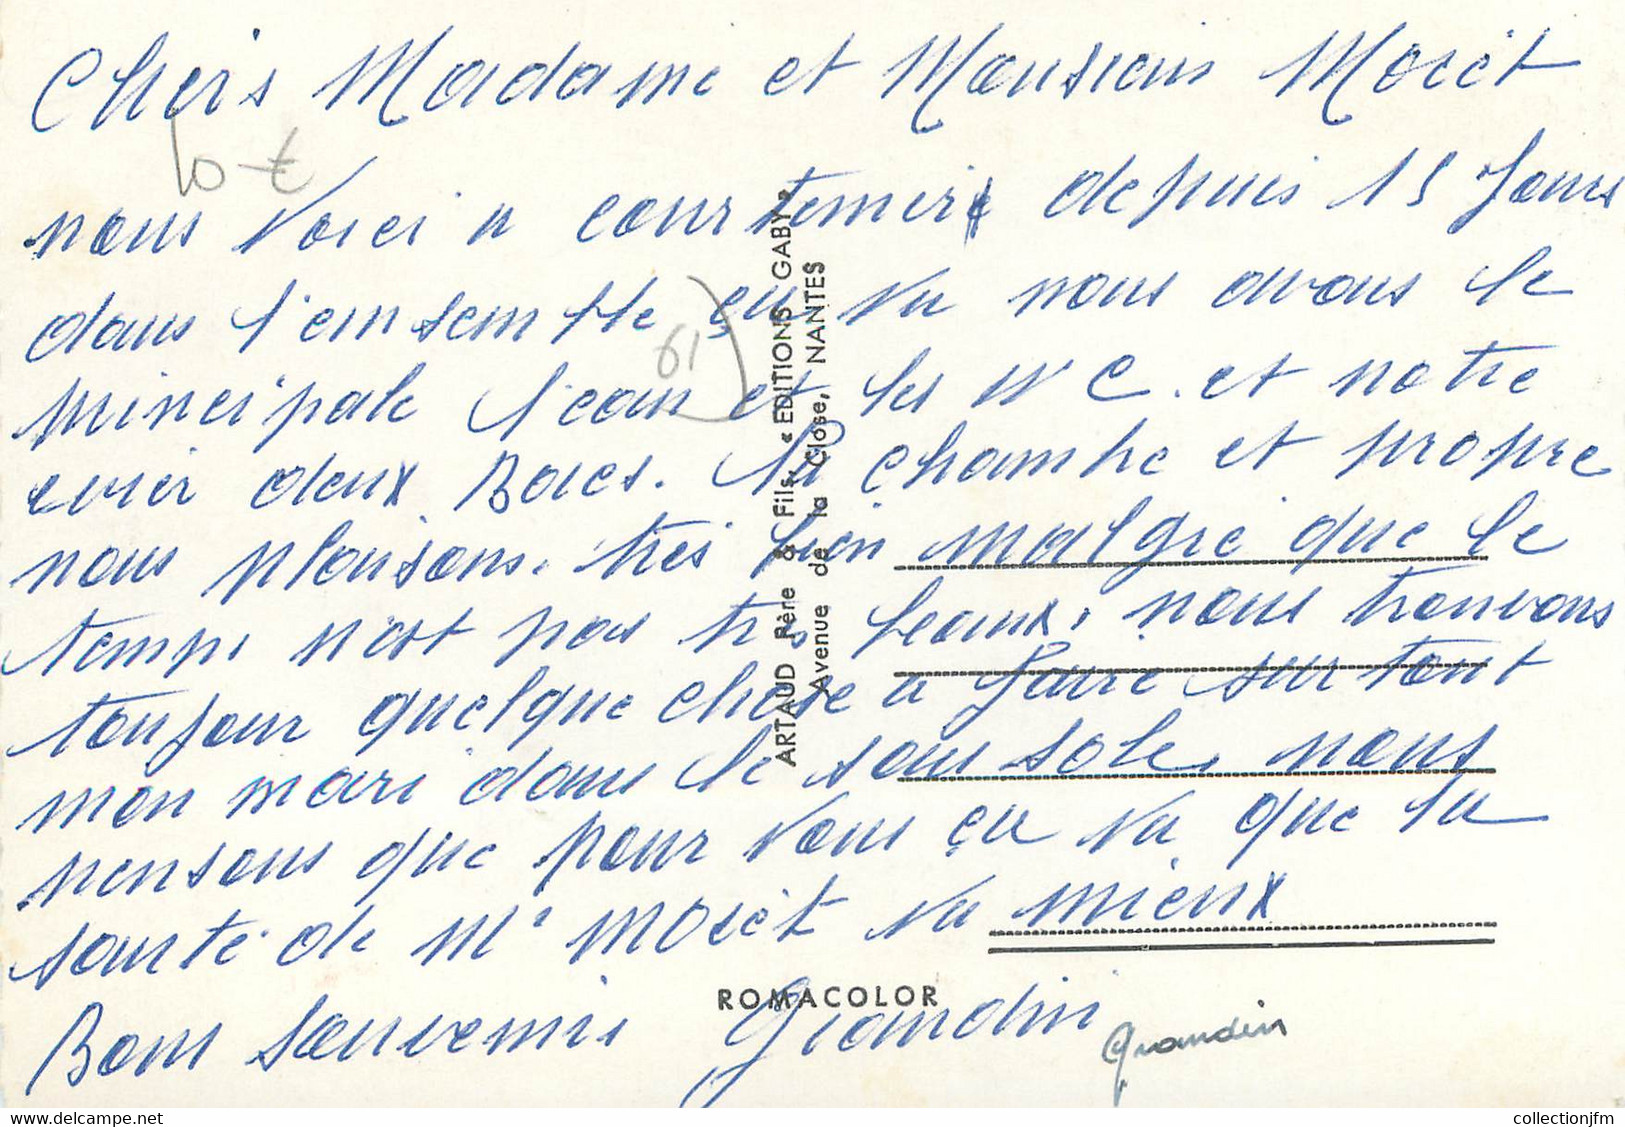 Chers Madame et Monsieur Moiët
nous voici a courtemer depuis 15 Jours
dans l'ensemble ça va nous avons le
principale l'eau et les W C. et notre
evier deux Bacs. la chambre et propre
nous plaisons. très bien malgré que le
temps n'est pas très beaux. nous trouvons
toujour quelque chose a faire surtout
mon mari dans le sous sole, nous
pensons que pour vous ça va que la
santé de Mr Moiët va mieux
Bons souvenir Grandin
Grandin
10 €
61)
ARTAUD Père & Fils, « EDITIONS GABY »
Avenue de la Close, NANTES
ROMACOLOR
collectionjfm